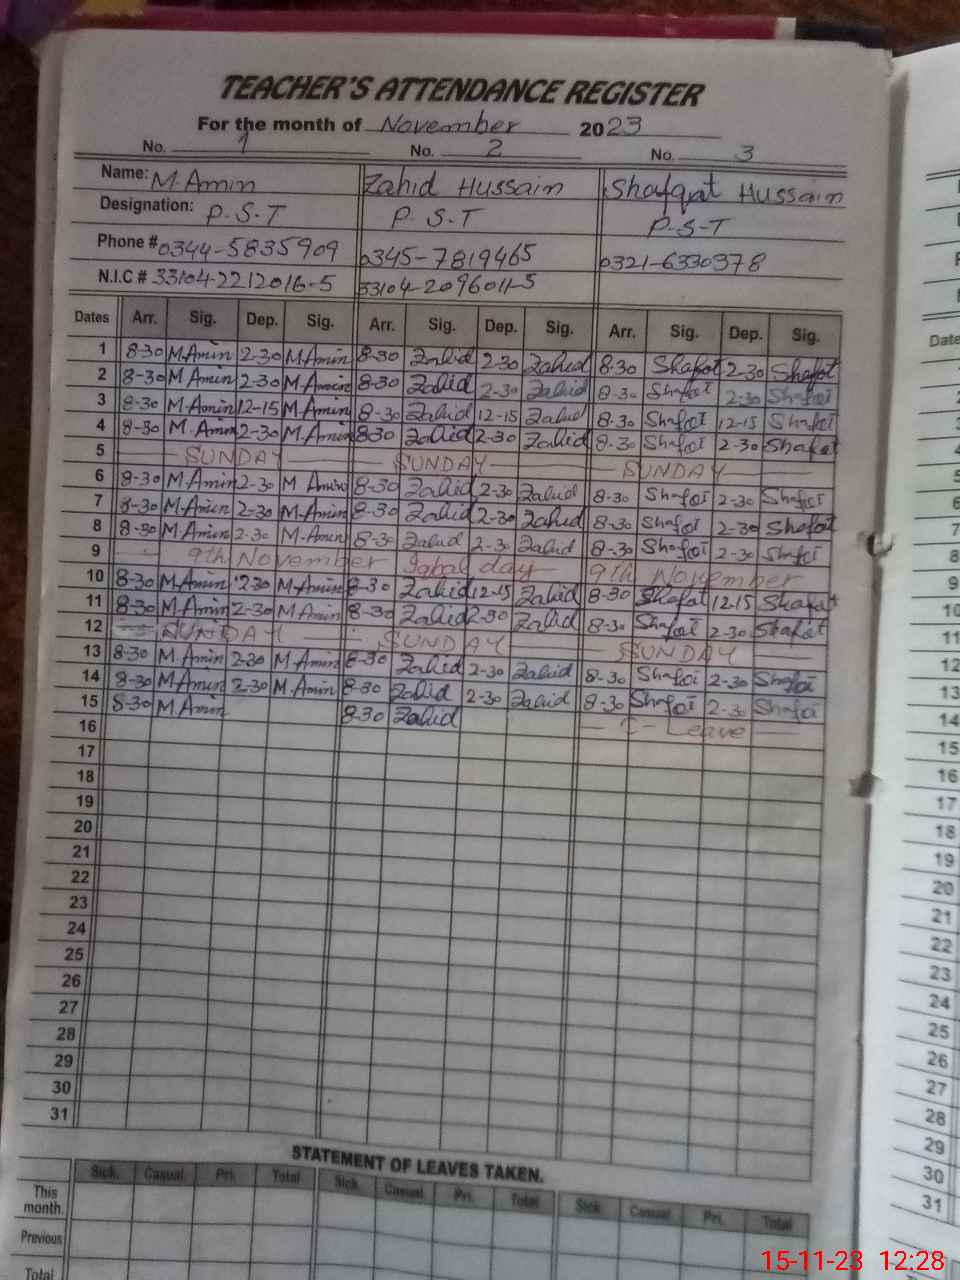 TEACHER'S ATTENDANCE REGISTER
For the month of November 2023
No. 1 No. 2 No. 3
Name: M.Amin Zahid Hussain Shafqat Hussain
Designation: P.S.T P.S.T P.S.T
Phone # 0344-5835909 0345-7819465 0321-6330378
N.I.C # 33104-2212016-5 33104-2096011-5
Dates Arr. Sig. Dep. Sig. Arr. Sig. Dep. Sig. Arr. Sig. Dep. Sig.
1 8-30 M.Amin 2-30 M.Amin 8-30 Zahid 2-30 Zahid 8-30 Shafqt 2-30 Shafqt
2 8-30 M.Amin 2-30 M.Amin 8-30 Zahid 2-30 Zahid 8-30 Shafqt 2-30 Shafqt
3 8-30 M.Amin 12-15 M.Amin 8-30 Zahid 12-15 Zahid 8-30 Shafqt 12-15 Shafqt
4 8-30 M.Amin 2-30 M.Amin 8-30 Zahid 2-30 Zahid 8-30 Shafqt 2-30 Shafqt
5 SUNDAY SUNDAY SUNDAY
6 8-30 M.Amin 2-30 M Amin 8-30 Zahid 2-30 Zahid 8-30 Shafqt 2-30 Shafqt
7 8-30 M.Amin 2-30 M.Amin 8-30 Zahid 2-30 Zahid 8-30 Shafqt 2-30 Shafqt
8 8-30 M.Amin 2-30 M.Amin 8-30 Zahid 2-30 Zahid 8-30 Shafqt 2-30 Shafqt
9 9th November Iqbal day 9th November
10 8-30 M.Amin 2-30 M.Amin 8-30 Zahid 12-15 Zahid 8-30 Shafqt 12-15 Shafqt
11 8-30 M.Amin 2-30 M.Amin 8-30 Zahid 2-30 Zahid 8-30 Shafqt 2-30 Shafqt
12 SUNDAY SUNDAY SUNDAY
13 8-30 M.Amin 2-30 M.Amin 8-30 Zahid 2-30 Zahid 8-30 Shafqt 2-30 Shafqt
14 8-30 M.Amin 2-30 M.Amin 8-30 Zahid 2-30 Zahid 8-30 Shafqt 2-30 Shafqt
15 8-30 M.Amin 8-30 Zahid C-Leave
16
17
18
19
20
21
22
23
24
25
26
27
28
29
30
31
STATEMENT OF LEAVES TAKEN.
Sick. Casual. Pri. Total Sick. Casual. Pri. Total Sick. Casual. Pri. Total
This month.
Previous
Total
Date
5
6
7
8
9
10
11
12
13
14
15
16
17
18
19
20
21
22
23
24
25
26
27
28
29
30
31
15-11-23 12:28